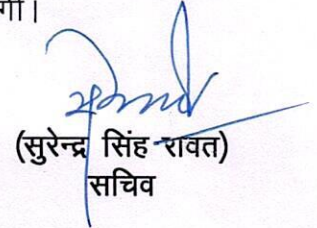 गी।
(सुरेन्द्र सिंह रावत)
सचिव